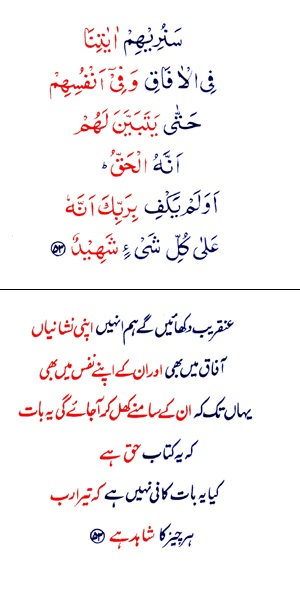 سَنُرِيْهِمْ اٰيٰتِنَا
فِى الْاٰفَاقِ وَفِىْٓ اَنْفُسِهِمْ
حَتّٰى يَتَبَيَّنَ لَهُمْ
اَنَّهُ الْحَقُّ ؕ
اَوَلَمْ يَكْفِ بِرَبِّكَ اَنَّهٗ
عَلٰى كُلِّ شَىْءٍ شَهِيْدٌ ﴿۵۳﴾
عنقریب دکھائیں گے ہم انہیں اپنی نشانیاں
آفاق میں بھی اور ان کے اپنے نفس میں بھی
یہاں تک کہ ان کے سامنے کھل کر آجائے گی یہ بات
کہ یہ کتاب حق ہے
کیا یہ بات کافی نہیں ہے کہ تیرا رب
ہر چیز کا شاہد ہے ﴿۵۳﴾